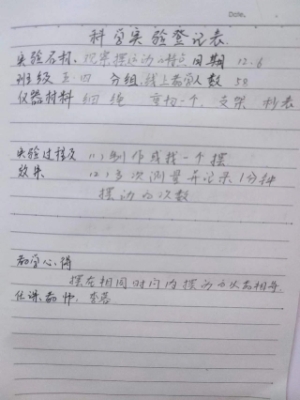 Date.
科学实验登记表
实验名称、观察摆运动的特点 日期 12.6
班级 五.四 分组,线上教学人数 58
仪器材料 细绳 重物一个、支架 秒表
实验过程及 (1)制作或找一个摆
效果 (2)多次测量并记录1分钟
摆动的次数
教学心得
摆在相同时间内摆动的次数相等
任课教师、李